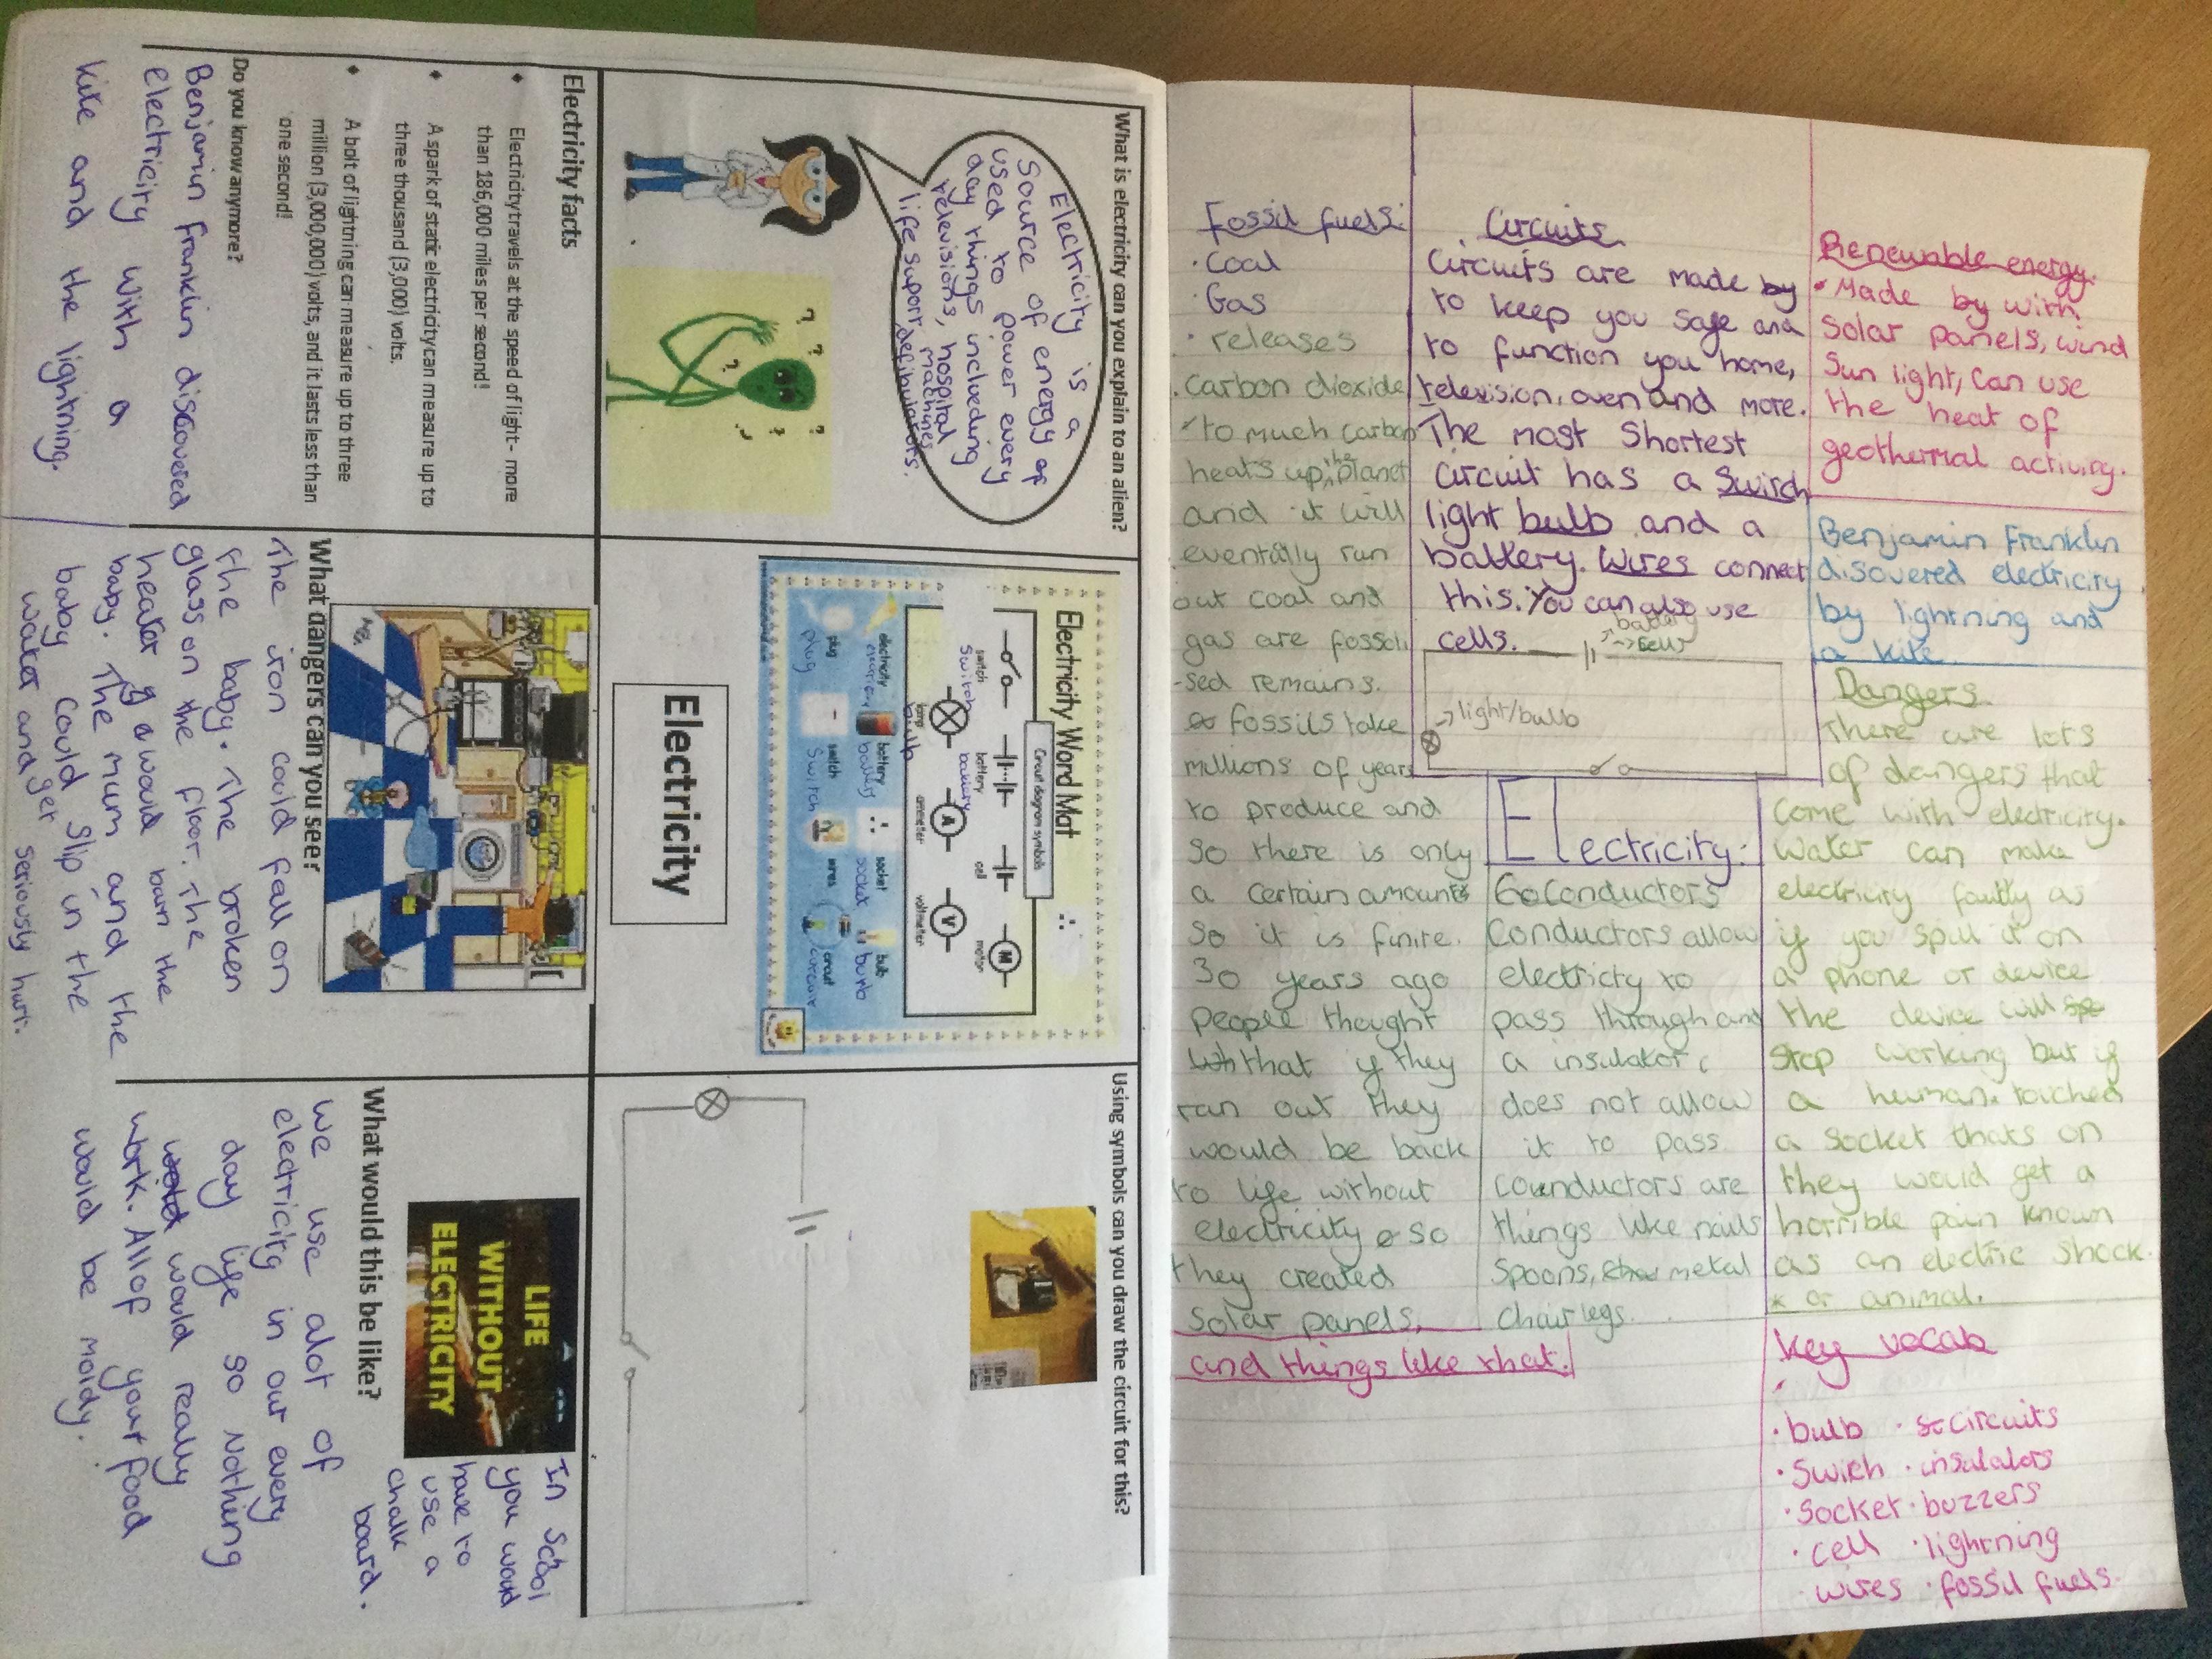 What is electricity can you explain to an alien?
Electricity is a
source of energy of
used to power every
day things inclueding
televisions, hospital
machines
life support, defibularots.
Electricity facts
Electricity travels at the speed of light - more
than 186,000 miles per second!
A spark of static electricity can measure up to
three thousand (3,000) volts.
A bolt of lightning can measure up to three
million (3,000,000) volts, and it lasts less than
one second!
Do you know anymore?
Benjamin franklin discovered
electricity with a
kite and the lightning.
Electricity Word Mat
Circuit diagram symbols
switch
battery
cell
motor
Switch
battery
lamp
ammeter
voltmeter
bulb
electricity
battery
socket
bulb
electricity
battery
socket
bulb
plug
switch
wires
circuit
plug
Switch
circuit
Electricity
What dangers can you see?
The iron could fall on
the baby. The broken
glass on the floor. The
heater would burn the
baby. The mum and the
baby could slip in the
water and get seriously hurt.
Using symbols can you draw the circuit for this?
LIFE
WITHOUT
ELECTRICITY
In School
you would
have to
use a
chalk
board.
What would this be like?
we use alot of
electricity in our every
day life so Nothing
would really
work. All of your food
would be moldy.
Fossil fuels:
· Coal
· Gas
· releases
carbon dioxide
to much carbon
heats up the planet
and it will
eventully run
out coal and
gas are fossili
-sed remains.
fossils take
millions of years
to produce and
so there is only
a certain amount
so it is finite.
30 years ago
people thought
that if they
ran out they
would be back
to life without
electricity so
they created
solar panels,
and things like that.
Circuits
Circuits are made by
to keep you safe and
to function you home,
television, oven and more.
The most shortest
circuit has a Switch
light bulb and a
battery. Wires connect
this. You can also use
cells.
battery
→ cell
→ light/bulb
Electricity:
Conductors
Conductors allow
electricty to
pass through and
a insulator
does not allow
it to pass
conductors are
things like nails
spoons, metal
chair legs.
Renewable energy.
· Made by with
solar panels, wind
Sun light, can use
the heat of
geothermal activity.
Benjamin Franklin
disovered electricity
by lightning and
a kite.
Dangers
There are lots
of dangers that
come with electricity.
Water can make
electricity faulty as
if you spill it on
a phone or device
the device will
stop working but if
a human* touched
a socket thats on
they would get a
horrible pain known
as an electric shock.
* or animal.
Key vocab
· bulb · circuits
· Swich · insulators
· Socket · buzzers
· cell · lightning
· wires · fossil fuels.